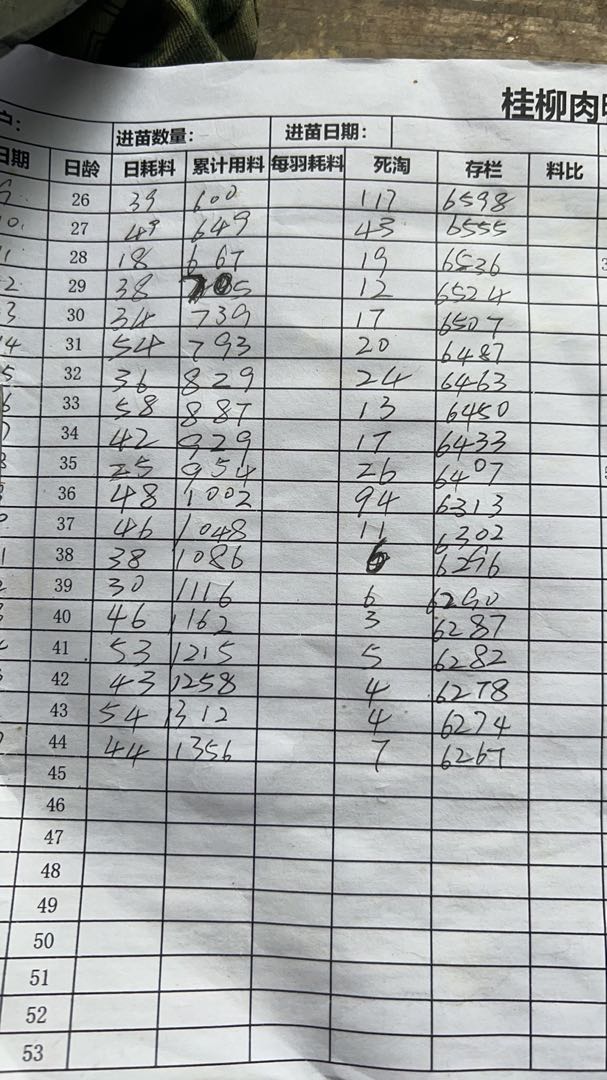 桂柳肉
户: 进苗数量: 进苗日期:
日期 日龄 日耗料 累计用料 每羽耗料 死淘 存栏 料比
26 39 600 117 6598
27 49 649 43 6555
28 18 667 19 6536
29 38 705 12 6524
30 34 739 17 6507
31 54 793 20 6487
32 36 829 24 6463
33 58 887 13 6450
34 42 929 17 6433
35 25 954 26 6407
36 48 1002 94 6313
37 46 1048 11 6302
38 38 1086 6 6296
39 30 1116 6 6290
40 46 1162 3 6287
41 53 1215 5 6282
42 43 1258 4 6278
43 54 1312 4 6274
44 44 1356 7 6267
45
46
47
48
49
50
51
52
53